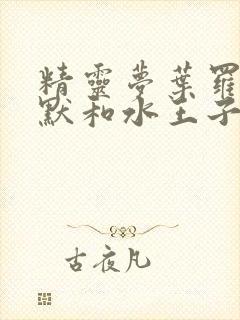 精靈夢葉羅
默和水王子
古夜凡